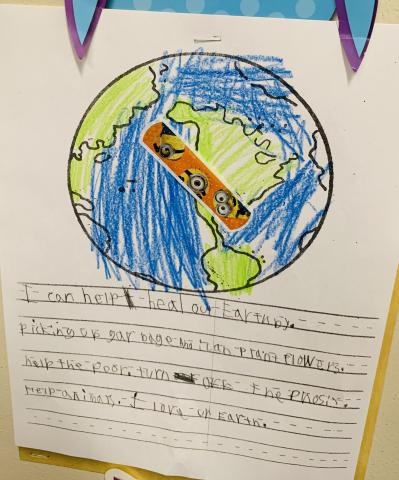 I can help heal our Earth by.
picking up garbage. I can plant flowers.
help the poor. turn off the
help animals. I love ur Earth.